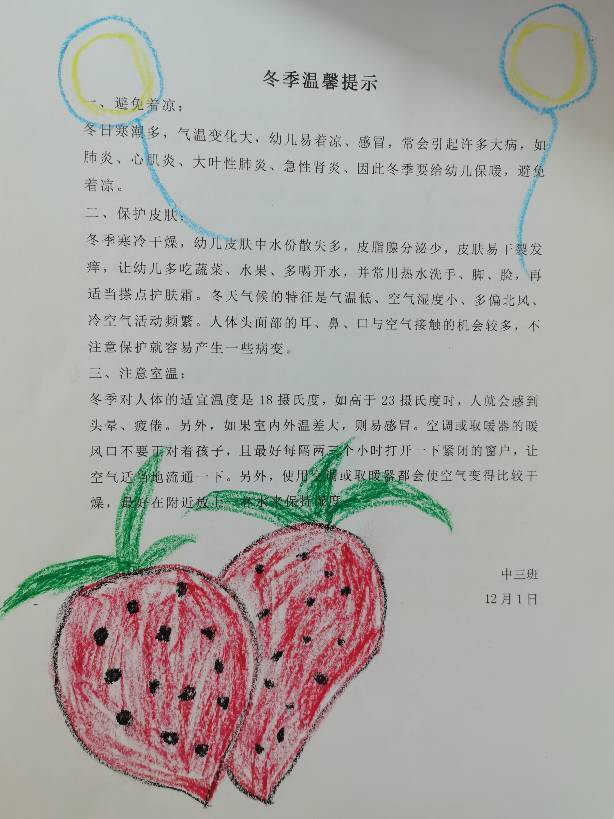 冬季温馨提示
一、避免着凉：
冬日寒潮多，气温变化大，幼儿易着凉、感冒，常会引起许多大病，如
肺炎、心肌炎、大叶性肺炎、急性肾炎、因此冬季要给幼儿保暖，避免
着凉。
二、保护皮肤：
冬季寒冷干燥，幼儿皮肤中水份散失多，皮脂腺分泌少，皮肤易干裂发
痒，让幼儿多吃蔬菜、水果、多喝开水，并常用热水洗手、脚、脸，再
适当搽点护肤霜。冬天气候的特征是气温低、空气湿度小、多偏北风、
冷空气活动频繁。人体头面部的耳、鼻、口与空气接触的机会较多，不
注意保护就容易产生一些病变。
三、注意室温：
冬季对人体的适宜温度是 18 摄氏度，如高于 23 摄氏度时，人就会感到
头晕、疲倦。另外，如果室内外温差大，则易感冒。空调或取暖器的暖
风口不要正对着孩子，且最好每隔两三个小时打开一下紧闭的窗户，让
空气适当地流通一下。另外，使用空调或取暖器都会使空气变得比较干
燥，最好在附近放上一杯水来保持湿度。
中三班
12 月 1 日